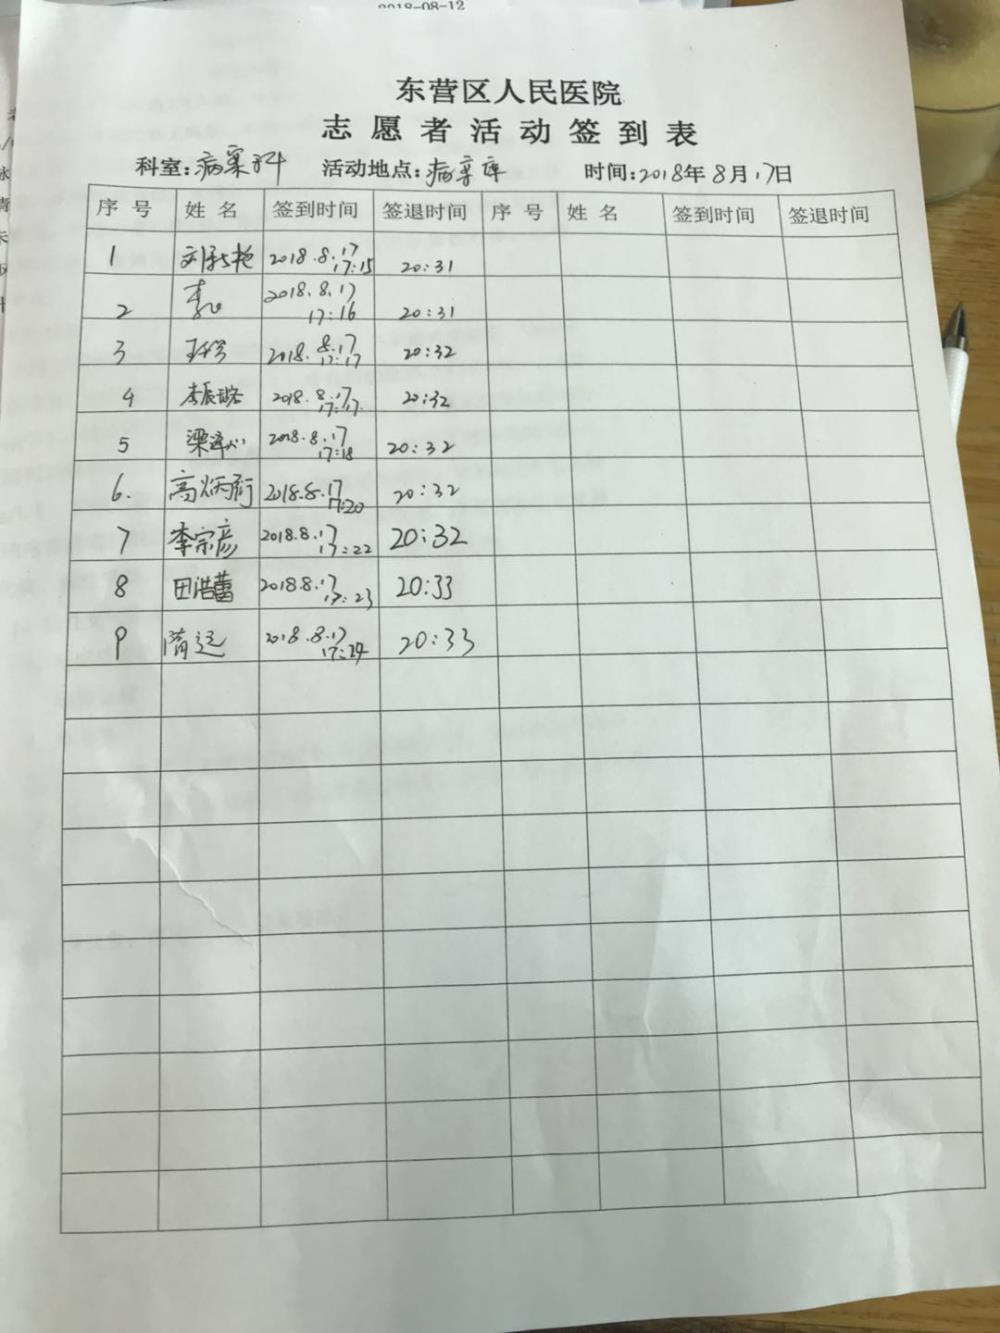 2018-08-12
东营区人民医院
志愿者活动签到表
科室:病案科 活动地点:病案库 时间:2018年8月17日
序号 姓名 签到时间 签退时间 序号 姓名 签到时间 签退时间
1 2018.8.17 17:15 20:31
2 2018.8.17 17:16 20:31
3 2018.8.17 17:17 20:32
4 李辰璐 2018.8.17 17:17 20:32
5 2018.8.17 17:18 20:32
6. 高炳衍 2018.8.17 17:20 20:32
7 李宗彦 2018.8.17 17:22 20:32
8 田浩蕾 2018.8.17 17:23 20:33
9 隋远 2018.8.17 17:24 20:33